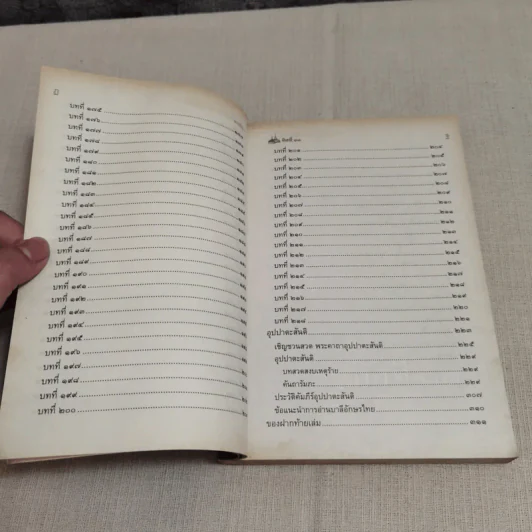 บทที่ ๑๗๕
บทที่ ๑๗๖
บทที่ ๑๗๗
บทที่ ๑๗๘
บทที่ ๑๗๙
บทที่ ๑๘๐
บทที่ ๑๘๑
บทที่ ๑๘๒
บทที่ ๑๘๓
บทที่ ๑๘๔
บทที่ ๑๘๕
บทที่ ๑๘๖
บทที่ ๑๘๗
บทที่ ๑๘๘
บทที่ ๑๘๙
บทที่ ๑๙๐
บทที่ ๑๙๑
บทที่ ๑๙๒
บทที่ ๑๙๓
บทที่ ๑๙๔
บทที่ ๑๙๕
บทที่ ๑๙๖
บทที่ ๑๙๗
บทที่ ๑๙๘
บทที่ ๑๙๙
บทที่ ๒๐๐
บทที่ ๒๐๑ ๒๐๔
บทที่ ๒๐๒ ๒๐๕
บทที่ ๒๐๓ ๒๐๖
บทที่ ๒๐๔ ๒๐๗
บทที่ ๒๐๕ ๒๐๘
บทที่ ๒๐๖ ๒๐๙
บทที่ ๒๐๗ ๒๑๐
บทที่ ๒๐๘ ๒๑๑
บทที่ ๒๐๙ ๒๑๒
บทที่ ๒๑๐ ๒๑๓
บทที่ ๒๑๑ ๒๑๔
บทที่ ๒๑๒ ๒๑๕
บทที่ ๒๑๓ ๒๑๖
บทที่ ๒๑๔ ๒๑๗
บทที่ ๒๑๕ ๒๑๘
บทที่ ๒๑๖ ๒๑๙
บทที่ ๒๑๗ ๒๒๐
บทที่ ๒๑๘ ๒๒๑
อุปปาตะสันติ ๒๒๓
เชิญชวนสวด พระคาถาอุปปาตะสันติ ๒๒๕
อุปปาตะสันติ ๒๒๙
บทสวดสงบเหตุร้าย ๒๒๙
คันธารัมภะ ๒๒๙
ประวัติคัมภีร์อุปปาตะสันติ ๓๐๗
ข้อแนะนำการอ่านบาลีอักษรไทย ๓๑๐
ของฝากท้ายเล่ม ๓๑๑